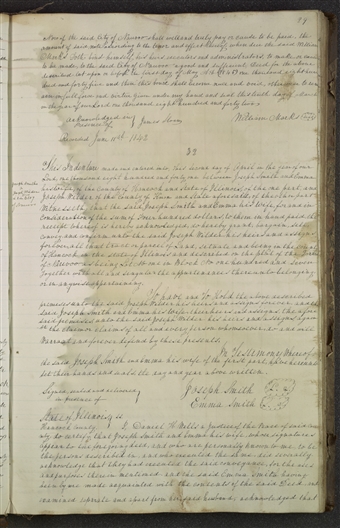 29
of the said City of Nauvoo shall well and truly pay or cause to be paid, the
amount of said note according to the tenor and effect thereof, when due the said William
Marks doth bind himself, his heirs executors and administrators, to make or cause
to be made, to the said City of Nauvoo a good and sufficient Deed for the above
described lot upon or before the first day of May A.D. one thousand eight hun
dred and forty five and then this bond shall become null and void, otherwise to re
main in full force and virtue. Given under my hand and seal this tenth day of
in the year of our Lord one thousand eight hundred and forty two
Acknowledged in
presence of James Sloan William Marks
Recorded Jan 10th 1843
32
This Indenture made and entered into this day of April in the year of our
Lord one thousand eight hundred and forty one between Joseph Smith and Emma
his wife of the County of Hancock and State of Illinois of the one part and
Joseph Fielder of the County of and State aforesaid of the other part
Witnesseth, that the said Joseph Smith and Emma his wife, for and in
consideration of the sum of Four hundred dollars, to them in hand paid the
receipt whereof is hereby acknowledged, do hereby grant, bargain, sell
convey and confirm unto the said Joseph Fielder his heirs and assigns
forever all that tract or parcel of Land, situate and being in the County
of Hancock in the State of Illinois and described on the plat of the
of Nauvoo as being Lot One in Block One hundred and Seven
Together with all and singular the appurtenances thereunto belonging
or in anywise appertaining.
To have and to Hold the above described
premises unto the said Joseph Fielder his heirs and assigns forever. And the
said Joseph Smith and Emma his wife their heirs and assigns the afore
said premises unto the said Joseph Fielder his heirs and assigns against
the claim or claims of all and every person whomsoever, do and will
Warrant and forever defend by these presents.
In Testimony Whereof
the said Joseph Smith and Emma his wife of the first part have hereunto
set their hands and seals the day and year above written.
Signed, sealed and delivered Joseph Smith
in presence of Emma Smith
State of Illinois ss
Hancock County I, Daniel H. Wells a Justice of the Peace of said County
do certify that Joseph Smith and Emma his wife, whose signatures
appear to the foregoing deed, and who are personally known to me to be
the persons described in, and who executed the same did severally
acknowledge that they had executed the said conveyance for the uses
and purposes therein mentioned and the said Emma Smith having
been by me made acquainted with the contents of the said Deed, and
examined separate and apart from her said husband acknowledged that